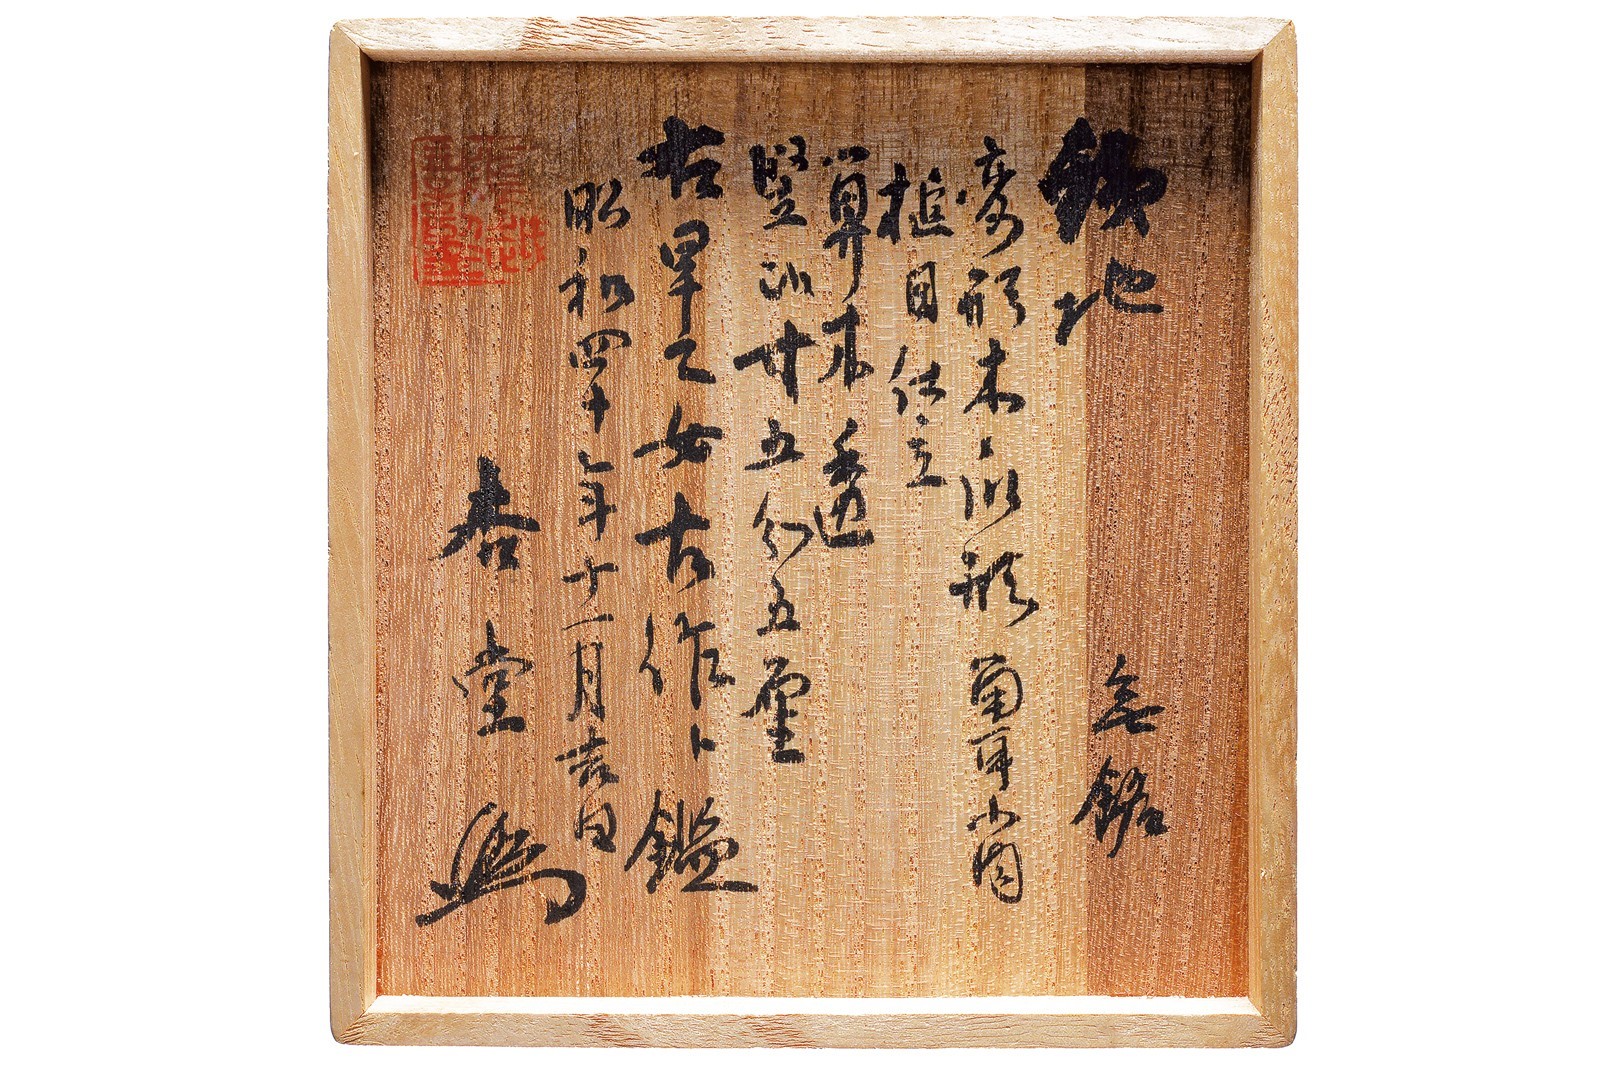 鉄地 無銘
変形木瓜形 菊耳小肉
槌目仕立
算木透
竪 五分五厘
右早乙女古作ト鑑
昭和四十年十一月吉日
杏堂